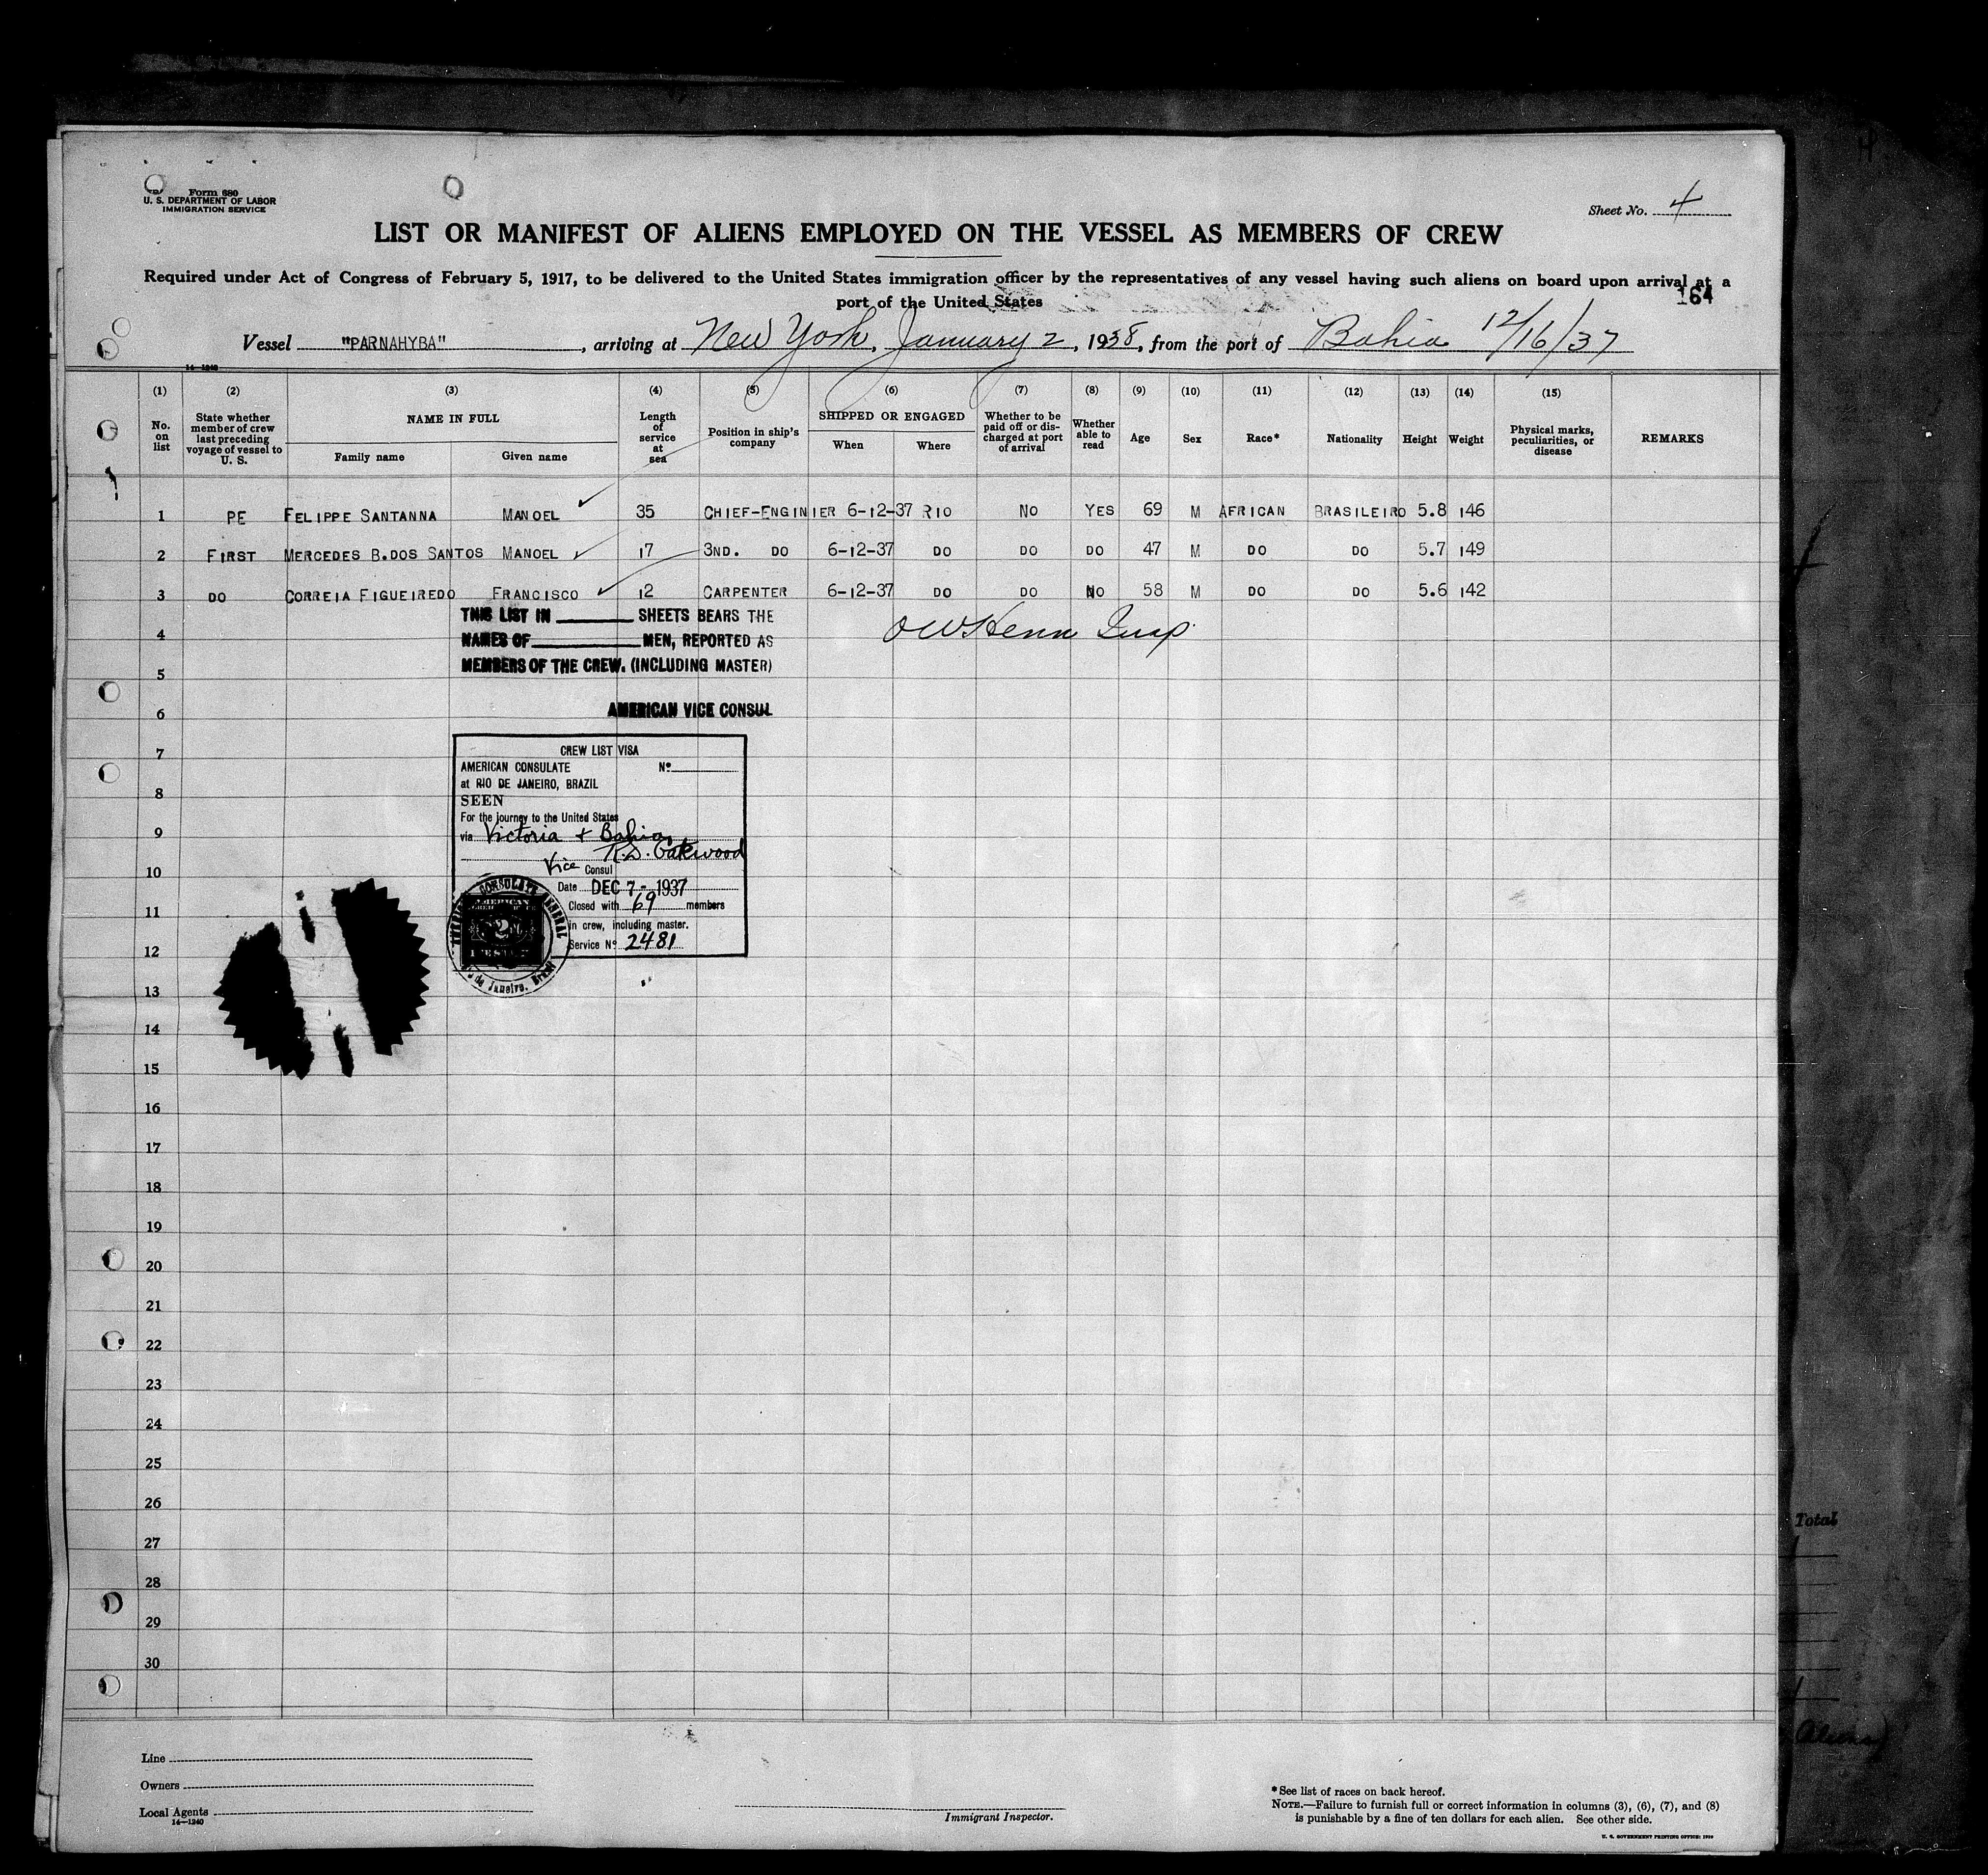 Form 680
U. S. DEPARTMENT OF LABOR
IMMIGRATION SERVICE
Sheet No. 4
LIST OR MANIFEST OF ALIENS EMPLOYED ON THE VESSEL AS MEMBERS OF CREW
Required under Act of Congress of February 5, 1917, to be delivered to the United States immigration officer by the representatives of any vessel having such aliens on board upon arrival at a
port of the United States
164
Vessel "PARNAHYBA", arriving at New York, January 2, 1938, from the port of Bahia 12/16/37
14-1240
(1) (2) (3) (4) (5) (6) (7) (8) (9) (10) (11) (12) (13) (14) (15)
No. on list
State whether member of crew last preceding voyage of vessel to U. S.
NAME IN FULL
Family name
Given name
Length of service at sea
Position in ship's company
SHIPPED OR ENGAGED
When
Where
Whether to be paid off or discharged at port of arrival
Whether able to read
Age
Sex
Race*
Nationality
Height
Weight
Physical marks, peculiarities, or disease
REMARKS
1 PE FELIPPE SANTANNA MANOEL 35 CHIEF-ENGINIER 6-12-37 RIO NO YES 69 M AFRICAN BRASILEIRO 5.8 146
2 FIRST MERCEDES B.DOS SANTOS MANOEL 17 3ND. DO 6-12-37 DO DO DO 47 M DO DO 5.7 149
3 DO CORREIA FIGUEIREDO FRANCISCO 12 CARPENTER 6-12-37 DO DO NO 58 M DO DO 5.6 142
THIS LIST IN SHEETS BEARS THE
NAMES OF MEN, REPORTED AS
MEMBERS OF THE CREW. (INCLUDING MASTER)
AMERICAN VICE CONSUL
4
5
6
7
8
9
10
11
12
13
14
15
16
17
18
19
20
21
22
23
24
25
26
27
28
29
30
CREW LIST VISA
AMERICAN CONSULATE No
at RIO DE JANEIRO, BRAZIL
SEEN
For the journey to the United States
via Victoria + Bahia
Vice Consul
Date DEC 7- 1937
Closed with 69 members
in crew, including master.
Service No 2481
CONSULATE GENERAL
de Janeiro, Brazil
Line
Owners
Local Agents
14-1240
Immigrant Inspector.
* See list of races on back hereof.
NOTE.—Failure to furnish full or correct information in columns (3), (6), (7), and (8)
is punishable by a fine of ten dollars for each alien. See other side.
Total